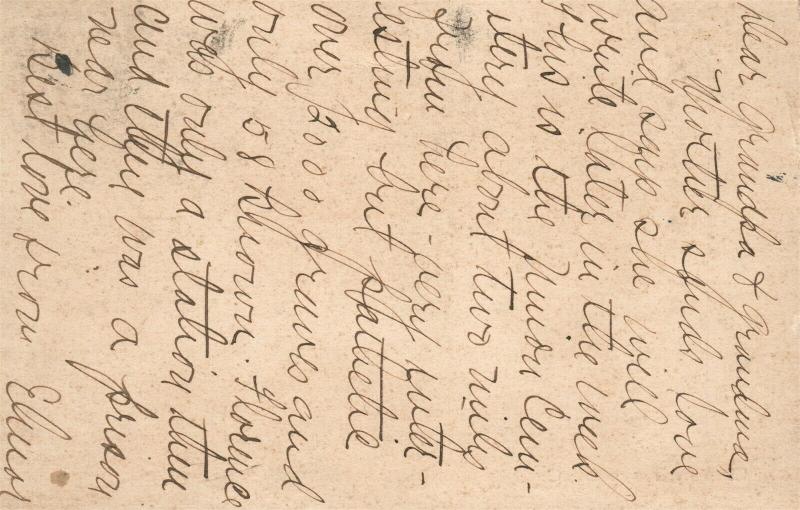 Dear Grandpa & Grandma,
Mother sends love
and says she will
write later in the week.
This is the Union Cem-
etery about two miles
from here - very inter-
esting but pathetic
over 2000 graves and
only 58 known. Florence
was only a station then
and there was a prison
near here.
Best love from Elinor